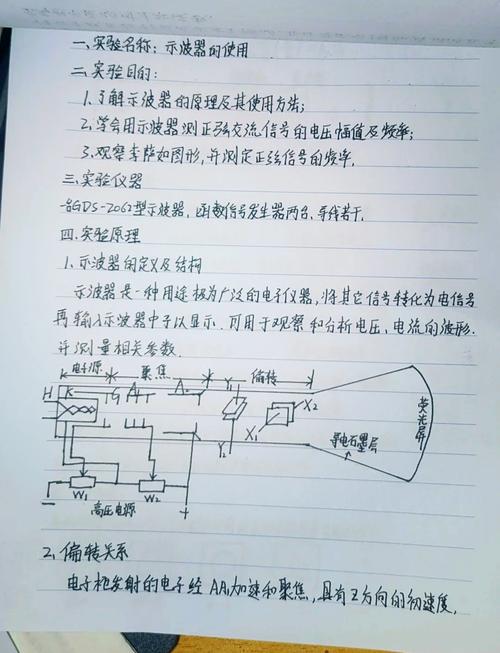 一、实验名称：示波器的使用
二、实验目的：
1.了解示波器的原理及其使用方法；
2.学会用示波器测正弦交流信号的电压幅值及频率；
3.观察李萨如图形，并测定正弦信号的频率。
三、实验仪器
一台GDS-2062型示波器，函数信号发生器两台，导线若干。
四、实验原理
1.示波器的定义及结构
示波器是一种用途极为广泛的电子仪器，将其它信号转化为电信号
再输入示波器中予以显示，可用于观察和分析电压、电流的波形，
并测量相关参数。
电子源 聚焦 偏转
H K G A1 A2 Y1
X2
X1
Y2
导电石墨层
荧光屏
W1 W2
高压电源
2.偏转关系
电子枪发射的电子经AA1加速和聚焦，具有Z方向的初速度，